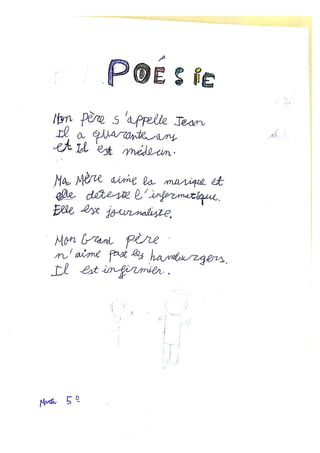 POÉSIE
Mon père s'appelle Jean
Il a quarante ans
et Il est médecin.
Ma Mère aime la musique et
elle déteste l'informatique.
Elle est journaliste.
Mon Grand père
n'aime past les hamburgers.
Il est infirmier.
5º